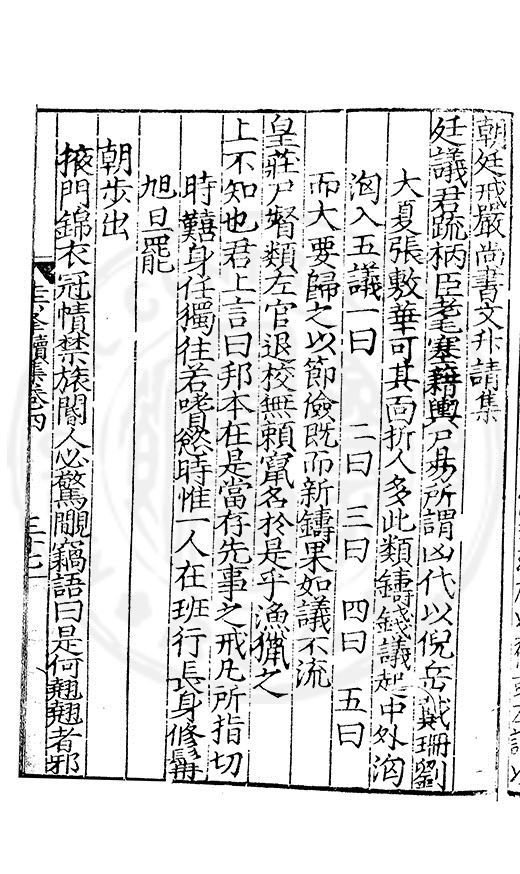 朝廷戒嚴尚書文升請集
廷議君疏柄臣耄塞藉輿尸昜所謂凶代以倪岳戴珊劉
大夏張敷華可其面折人多此類鑄錢議起中外洶
洶入五議一曰　二曰　三曰　四曰　五曰
而大要歸之以節儉既而新鑄果如議不流
皇莊尸督類左官退校無賴竄名於是乎漁獵之
上不知也君上言曰邦本在是當存先事之戒凡所指切
時難身任獨往若嗜慾時惟一人在班行長身修髯
旭旦罷
朝步出
掖門錦衣冠幘禁旅閽人必驚覸竊語曰是何翹翹者邪
續集卷四